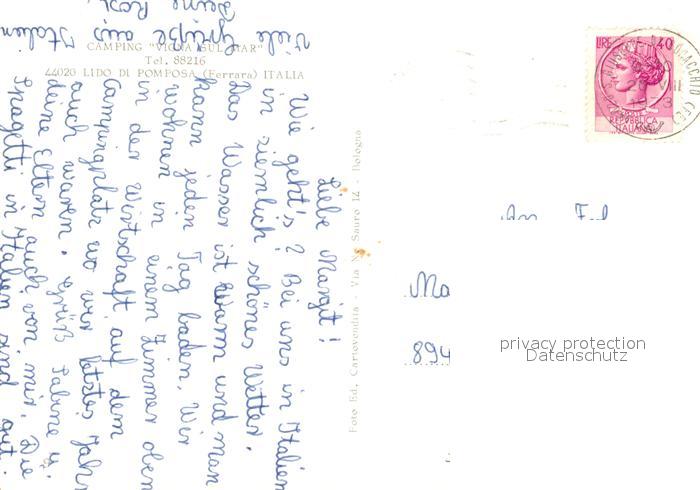 CAMPING "VIGNA SUL MAR"
Tel. 88216
44020 LIDO DI POMPOSA (Ferrara) ITALIA
Liebe Margit!
Wie geht's? Bei uns in Italien
ist ziemlich schönes Wetter.
Das Wasser ist warm und man
kann jeden Tag baden. Wir
wohnen in einem Zimmer oben
in der Wirtschaft auf dem
Campingplatz wo wir letztes Jahr
auch waren. Grüß Sabine u.
deine Eltern auch von mir. Die
Spagetti in Italien sind gut.
Viele Grüße aus Italien
Deine Rosi
Foto Ed. Cartovendita - Via N. Sauro 14 - Bologna
LIRE 40
REPUBBLICA
ITALIANA
An Frl
Ma
894
privacy protection
Datenschutz